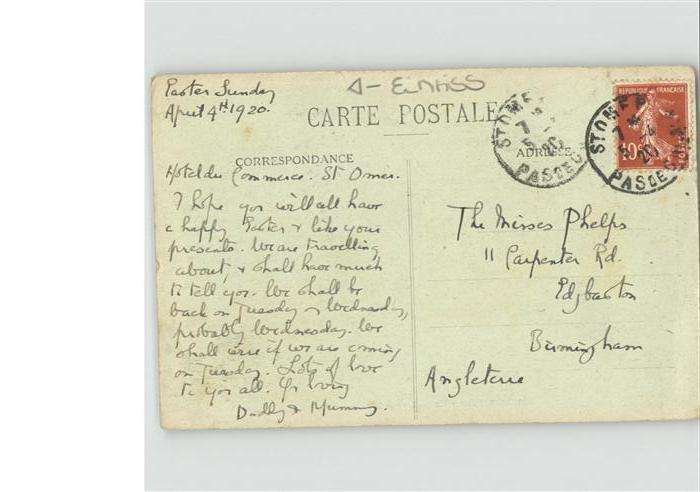 Easter Sunday
April 4th 1920.
CARTE POSTALE
CORRESPONDANCE
ADRESSE
Hotel du Commerce. St Omer.
I hope you will all have
a happy Easter & like your
presents. We are travelling
about, & shall have much
to tell you. We shall be
back on Tuesday or Wednesday,
probably Wednesday. We
shall wire if we are coming
on Tuesday. Lots of love
to you all. Yr loving
Daddy & Mummy.
The Misses Phelps
11 Carpenter Rd.
Edgbaston
Birmingham
Angleterre
ST OMER
7
20
PAS DE C
REPUBLIQUE FRANCAISE
ST OMER
7
20
PAS DE C